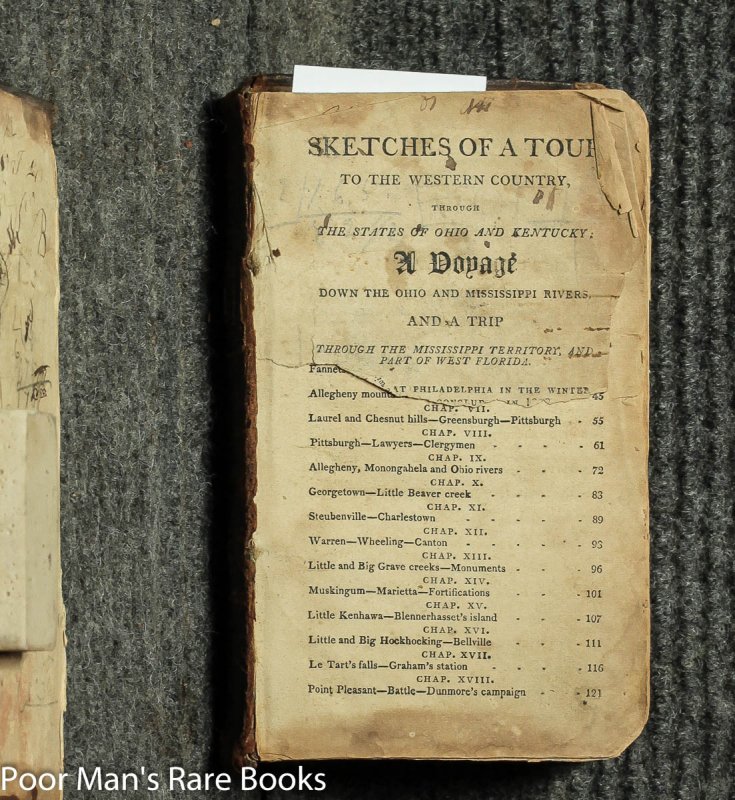 SKETCHES OF A TOUR
TO THE WESTERN COUNTRY,
THROUGH
THE STATES OF OHIO AND KENTUCKY;
A Voyage
DOWN THE OHIO AND MISSISSIPPI RIVERS,
AND A TRIP
THROUGH THE MISSISSIPPI TERRITORY, AND
PART OF WEST FLORIDA.
Fannet
AT PHILADELPHIA IN THE WINTER
Allegheny mount 45
CHAP. VII.
Laurel and Chesnut hills—Greensburgh—Pittsburgh - 55
CHAP. VIII.
Pittsburgh—Lawyers—Clergymen - - - - 61
CHAP. IX.
Allegheny, Monongahela and Ohio rivers - - - 72
CHAP. X.
Georgetown—Little Beaver creek - - - - 83
CHAP. XI.
Steubenville—Charlestown - - - - - 89
CHAP. XII.
Warren—Wheeling—Canton - - - - - 93
CHAP. XIII.
Little and Big Grave creeks—Monuments - - - 96
CHAP. XIV.
Muskingum—Marietta—Fortifications - - - 101
CHAP. XV.
Little Kenhawa—Blennerhasset's island - - - 107
CHAP. XVI.
Little and Big Hockhocking—Bellville - - - 111
CHAP. XVII.
Le Tart's falls—Graham's station - - - - 116
CHAP. XVIII.
Point Pleasant—Battle—Dunmore's campaign - - 121
Poor Man's Rare Books